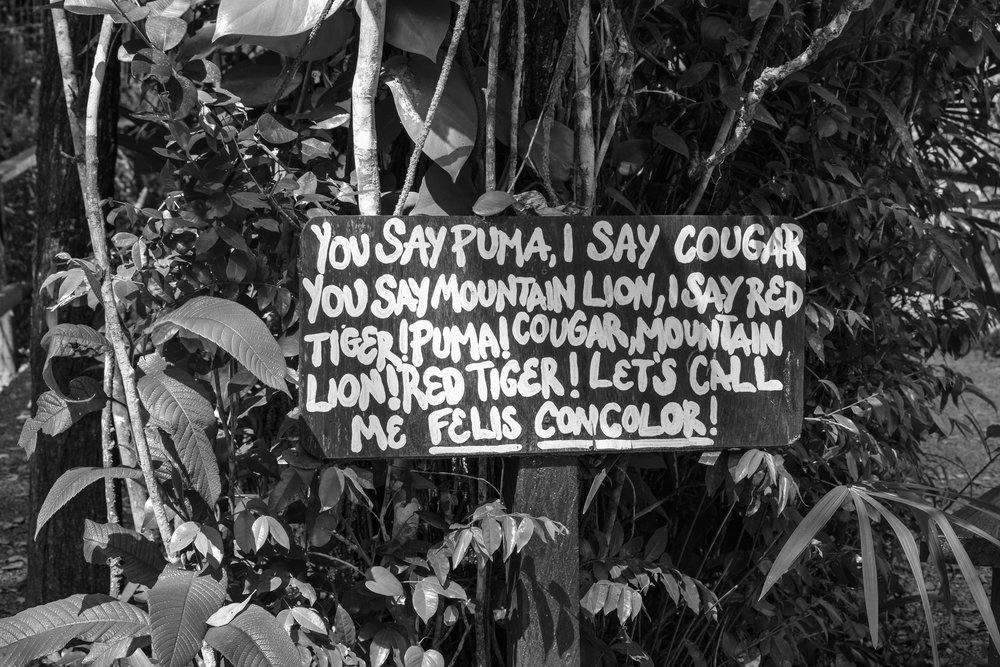 YOU SAY PUMA, I SAY COUGAR
YOU SAY MOUNTAIN LION, I SAY RED
TIGER! PUMA! COUGAR, MOUNTAIN
LION! RED TIGER! LET'S CALL
ME FELIS CONCOLOR!